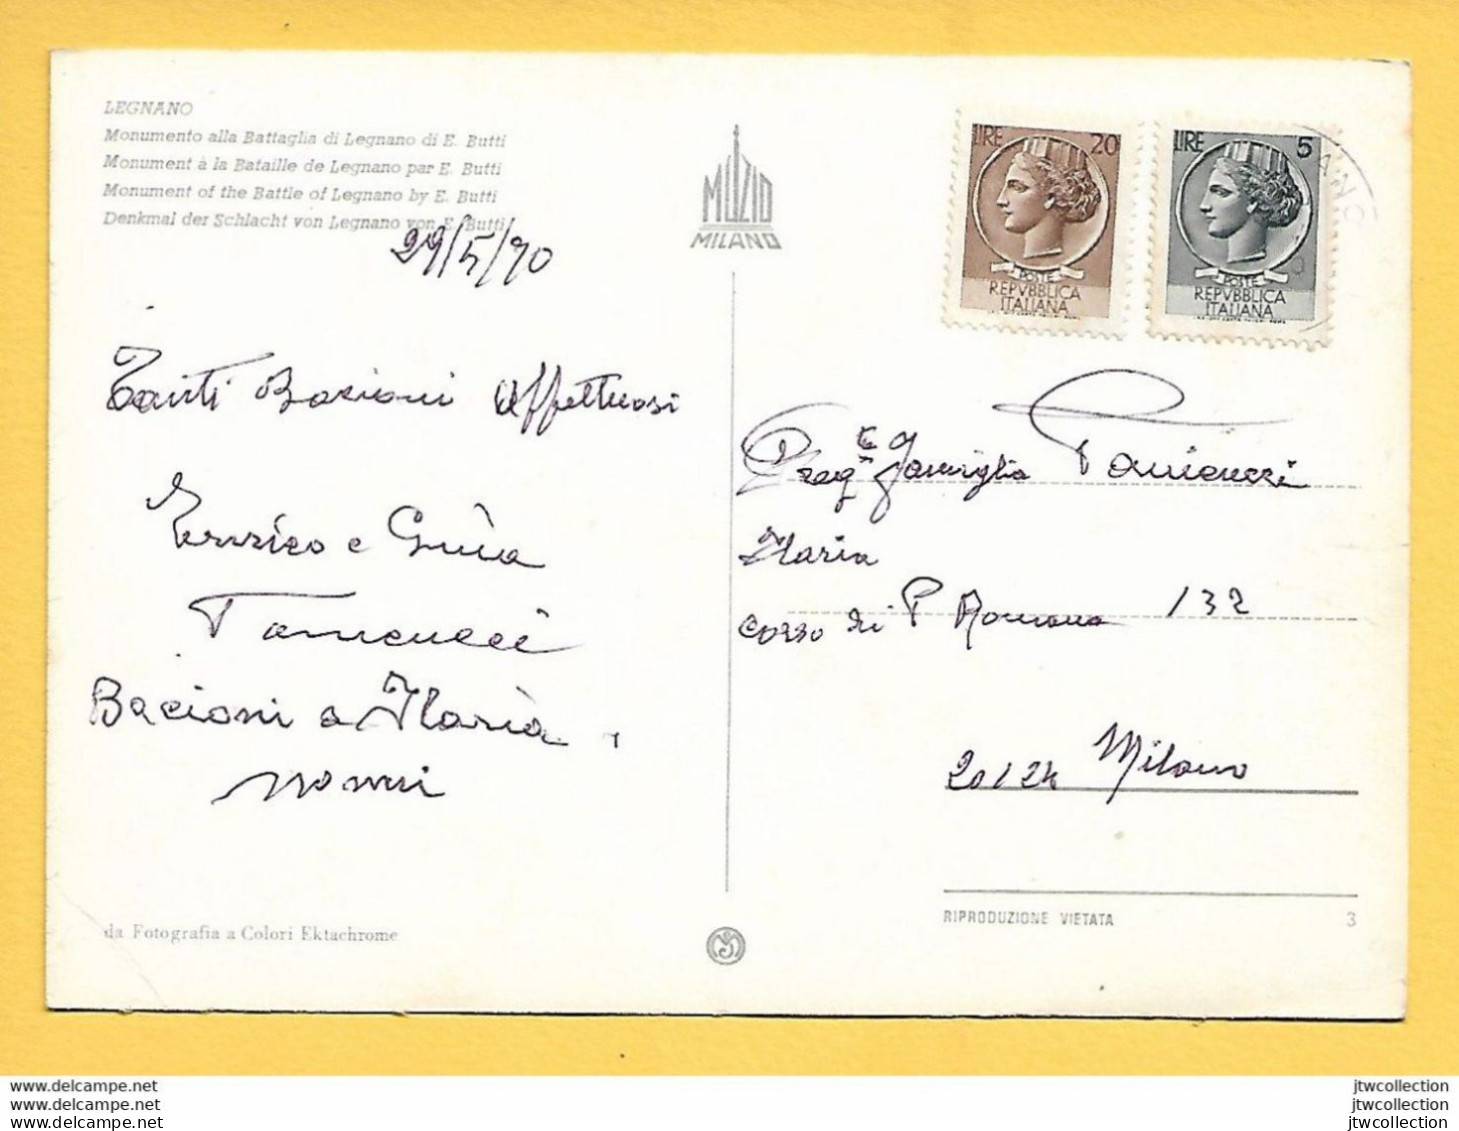 LEGNANO
Monumento alla Battaglia di Legnano di E. Butti
Monument à la Bataille de Legnano par E. Butti
Monument of the Battle of Legnano by E. Butti
Denkmal der Schlacht von Legnano von E. Butti
29/5/70
Tanti Bacioni Affettuosi
Enrico e Giuia
Bacioni a Ilaria
nonni
da Fotografia a Colori Ektachrome
MUZIO
MILANO
LIRE 20
POSTE
REPVBBLICA
ITALIANA
LIRE 5
POSTE
REPVBBLICA
ITALIANA
famiglia
Ilaria
corso di P Romana 132
20124 Milano
RIPRODUZIONE VIETATA 3
www.delcampe.net
www.delcampe.net
www.delcampe.net
jtwcollection
jtwcollection
jtwcollection